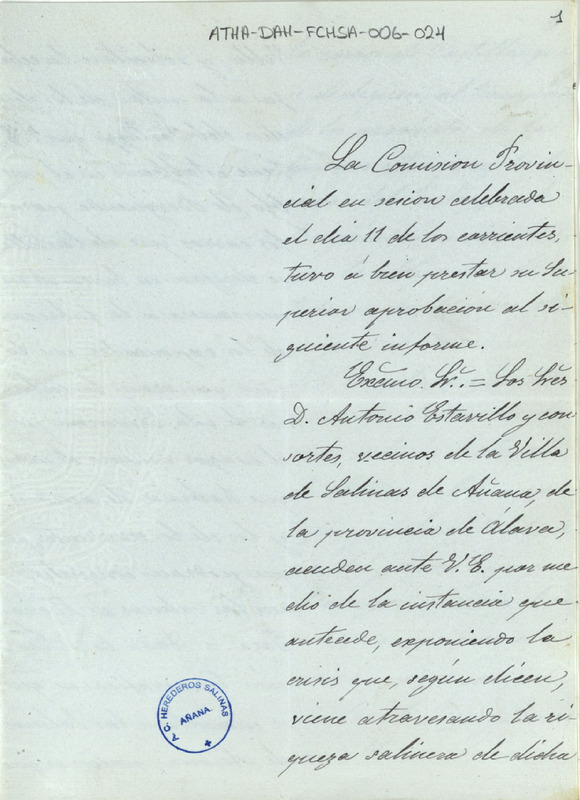 1
ATHA-DAH-FCHSA-006-024
La Comision Provin-
cial en sesion celebrada
el dia 11 de los corrientes,
tuvo á bien prestar su Su-
perior aprobacion al si-
guiente informe.
Excmo. Sr. = Los Sres
D. Antonio Estavillo y con
sortes, vecinos de la Villa
de Salinas de Añana, de
la provincia de Álava,
acuden ante V.E. por me
dio de la instancia que
antecede, exponiendo la
crisis que, según dicen,
viene atravesando la ri-
queza salinera de dicha
HEREDEROS SALINAS
AÑANA